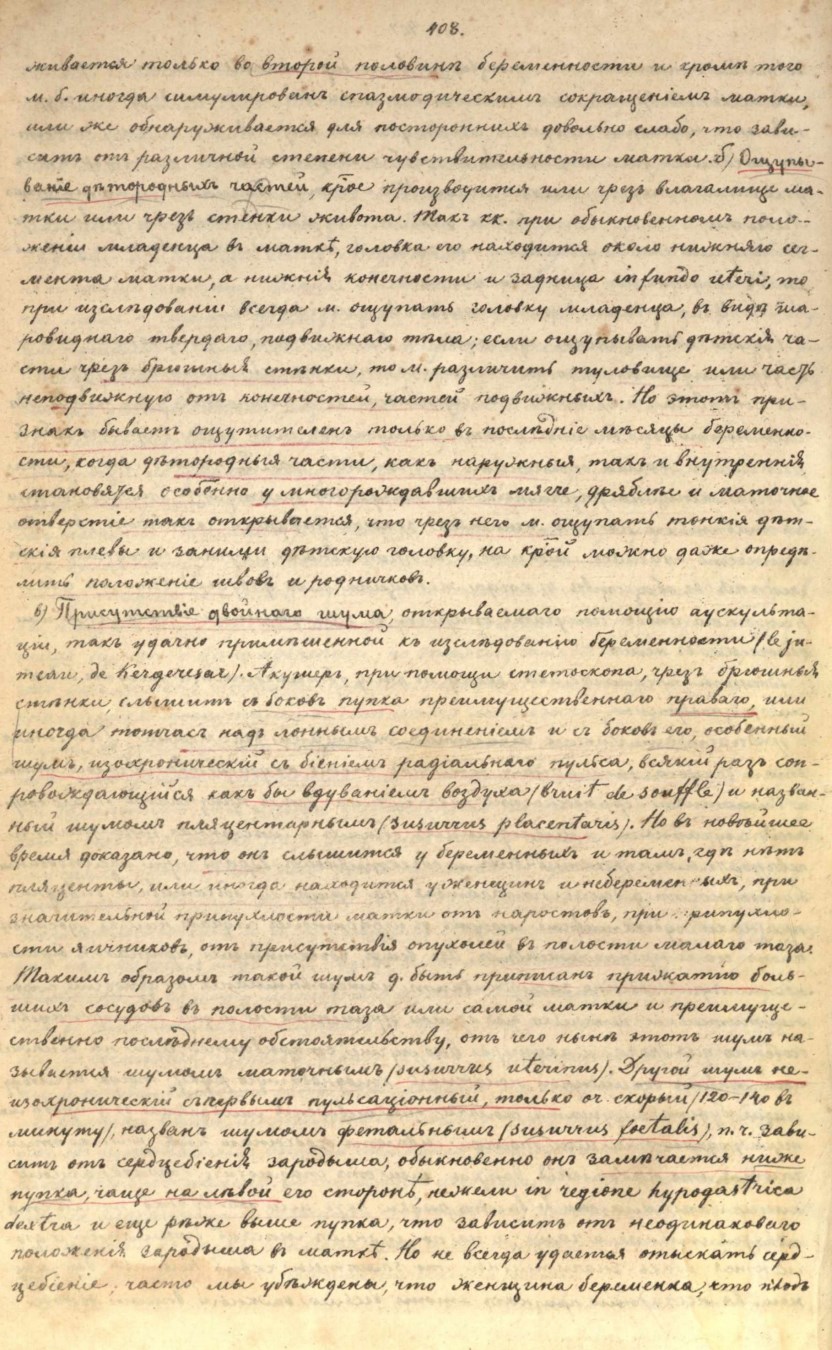 408.
живается только во второй половинѣ беременности и кромѣ того
м. б. иногда симулированъ спазмодическимъ сокращеніемъ матки,
или же обнаруживается для постороннихъ довольно слабо, что зави-
ситъ отъ различной степени чувствительности матки. б) Ощупы-
ваніе дѣтородныхъ частей, крое производится или чрезъ влагалище ма-
тки или чрезъ стѣнки живота. Такъ кк. при обыкновенномъ поло-
женіи младенца въ маткѣ, головка его находится около нижняго сег-
мента матки, а нижнія конечности и задница in fundo uteri, то
при изслѣдованіи всегда м. ощупать головку младенца, въ видѣ ша-
ровиднаго твердаго, подвижнаго тѣла; если ощупывать дѣтскія ча-
сти чрезъ брюшныя стѣнки, то м. различить туловище или часть
неподвижную отъ конечностей, частей подвижныхъ. Но этотъ при-
знакъ бываетъ ощутителенъ только въ послѣдніе мѣсяцы беременно-
сти, когда дѣтородныя части, какъ наружныя, такъ и внутреннія
становятся особенно у многорождавшихъ мягче, дряблѣе и маточное
отверстіе такъ открывается, что чрезъ него м. ощупать тонкія дѣт-
скія плевы и за ними дѣтскую головку, на крой можно даже опредѣ-
лить положеніе швовъ и родничковъ.
в) Присутствіе двойнаго шума, открываемаго помощію аускульта-
ціи, такъ удачно примѣненной къ изслѣдованію беременности (le ju-
meau, de Kergaresar). Акушеръ, при помощи стетоскопа, чрезъ брюшныя
стѣнки, слышитъ съ боковъ пупка преимущественнаго праваго, или
иногда тотчасъ надъ лоннымъ соединеніемъ и съ боковъ его, особенный
шумъ, изохроническій съ біеніемъ радіальнаго пульса, всякій разъ соп-
ровождающійся какъ бы вдуваніемъ воздуха (bruit de souffle) и назван-
ный шумомъ пляцентарнымъ (susurrus placentaris). Но въ новѣйшее
время доказано, что онъ слышится у беременныхъ и тамъ, гдѣ нѣтъ
пляценты, или иногда находится у женщинъ и небеременныхъ, при
значительной припухлости матки отъ наростовъ, при припухло-
сти яичниковъ, отъ присутствія опухолей въ полости малаго таза.
Такимъ образомъ такой шумъ д. быть приписанъ прижатію боль-
шихъ сосудовъ въ полости таза или самой матки и преимуще-
ственно послѣднему обстоятельству, отъ чего нынѣ этотъ шумъ на-
зывается шумомъ маточнымъ (susurrus uterinus). Другой шумъ не-
изохроническій съ первымъ пульсаціонный, только оч. скорый (120-140 въ
минуту), названъ шумомъ фетальнымъ (susurrus foetalis), п. ч. зави-
ситъ отъ сердцебіенія зародыша, обыкновенно онъ замѣчается ниже
пупка, чаще на лѣвой его сторонѣ, нежели in regione hypogastrica
dextra и еще рѣже выше пупка, что зависитъ отъ неодинаковаго
положенія зародыша въ маткѣ. Но не всегда удается отыскать серд-
цебіеніе; часто мы убѣждены, что женщина беременна, что плодъ